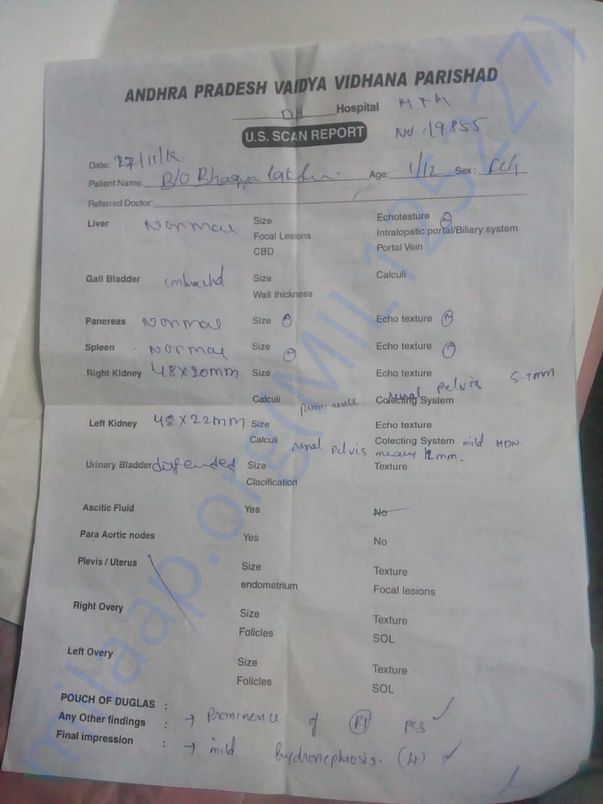 ANDHRA PRADESH VAIDYA VIDHANA PARISHAD
DH Hospital MTM
U.S. SCAN REPORT No. 19855
Date: 27/11/19
Patient Name B/O Bhagya Age: 1/12 Sex: Fch
Referred Doctor:
Liver Normal Size Echotesture N
Focal Lesions Intralopatic portal/Biliary system
CBD Portal Vein
Gall Bladder Size Calculi
Wall thickness
Panereas Normal Size N Echo texture N
Spleen Normal Size N Echo texture N
Right Kidney 48X20mm Size Echo texture
Calculi prominence renal pelvis 5-7mm Colecting System
Left Kidney 48X22mm Size Echo texture
Calculi renal pelvis Colecting System mild HDN
measu 12mm.
Urinary Bladder distended Size Texture
Clacification
Ascitic Fluid Yes No
Para Aortic nodes Yes No
Plevis / Uterus Size Texture
endometrium Focal lesions
Right Overy Size Texture
Folicles SOL
Left Overy Size Texture
Folicles SOL
POUCH OF DUGLAS :
Any Other findings : → Prominence of Rt pcs
Final impression : → mild hydronephrosis. (Lt)
milaap.org(MIL125227)